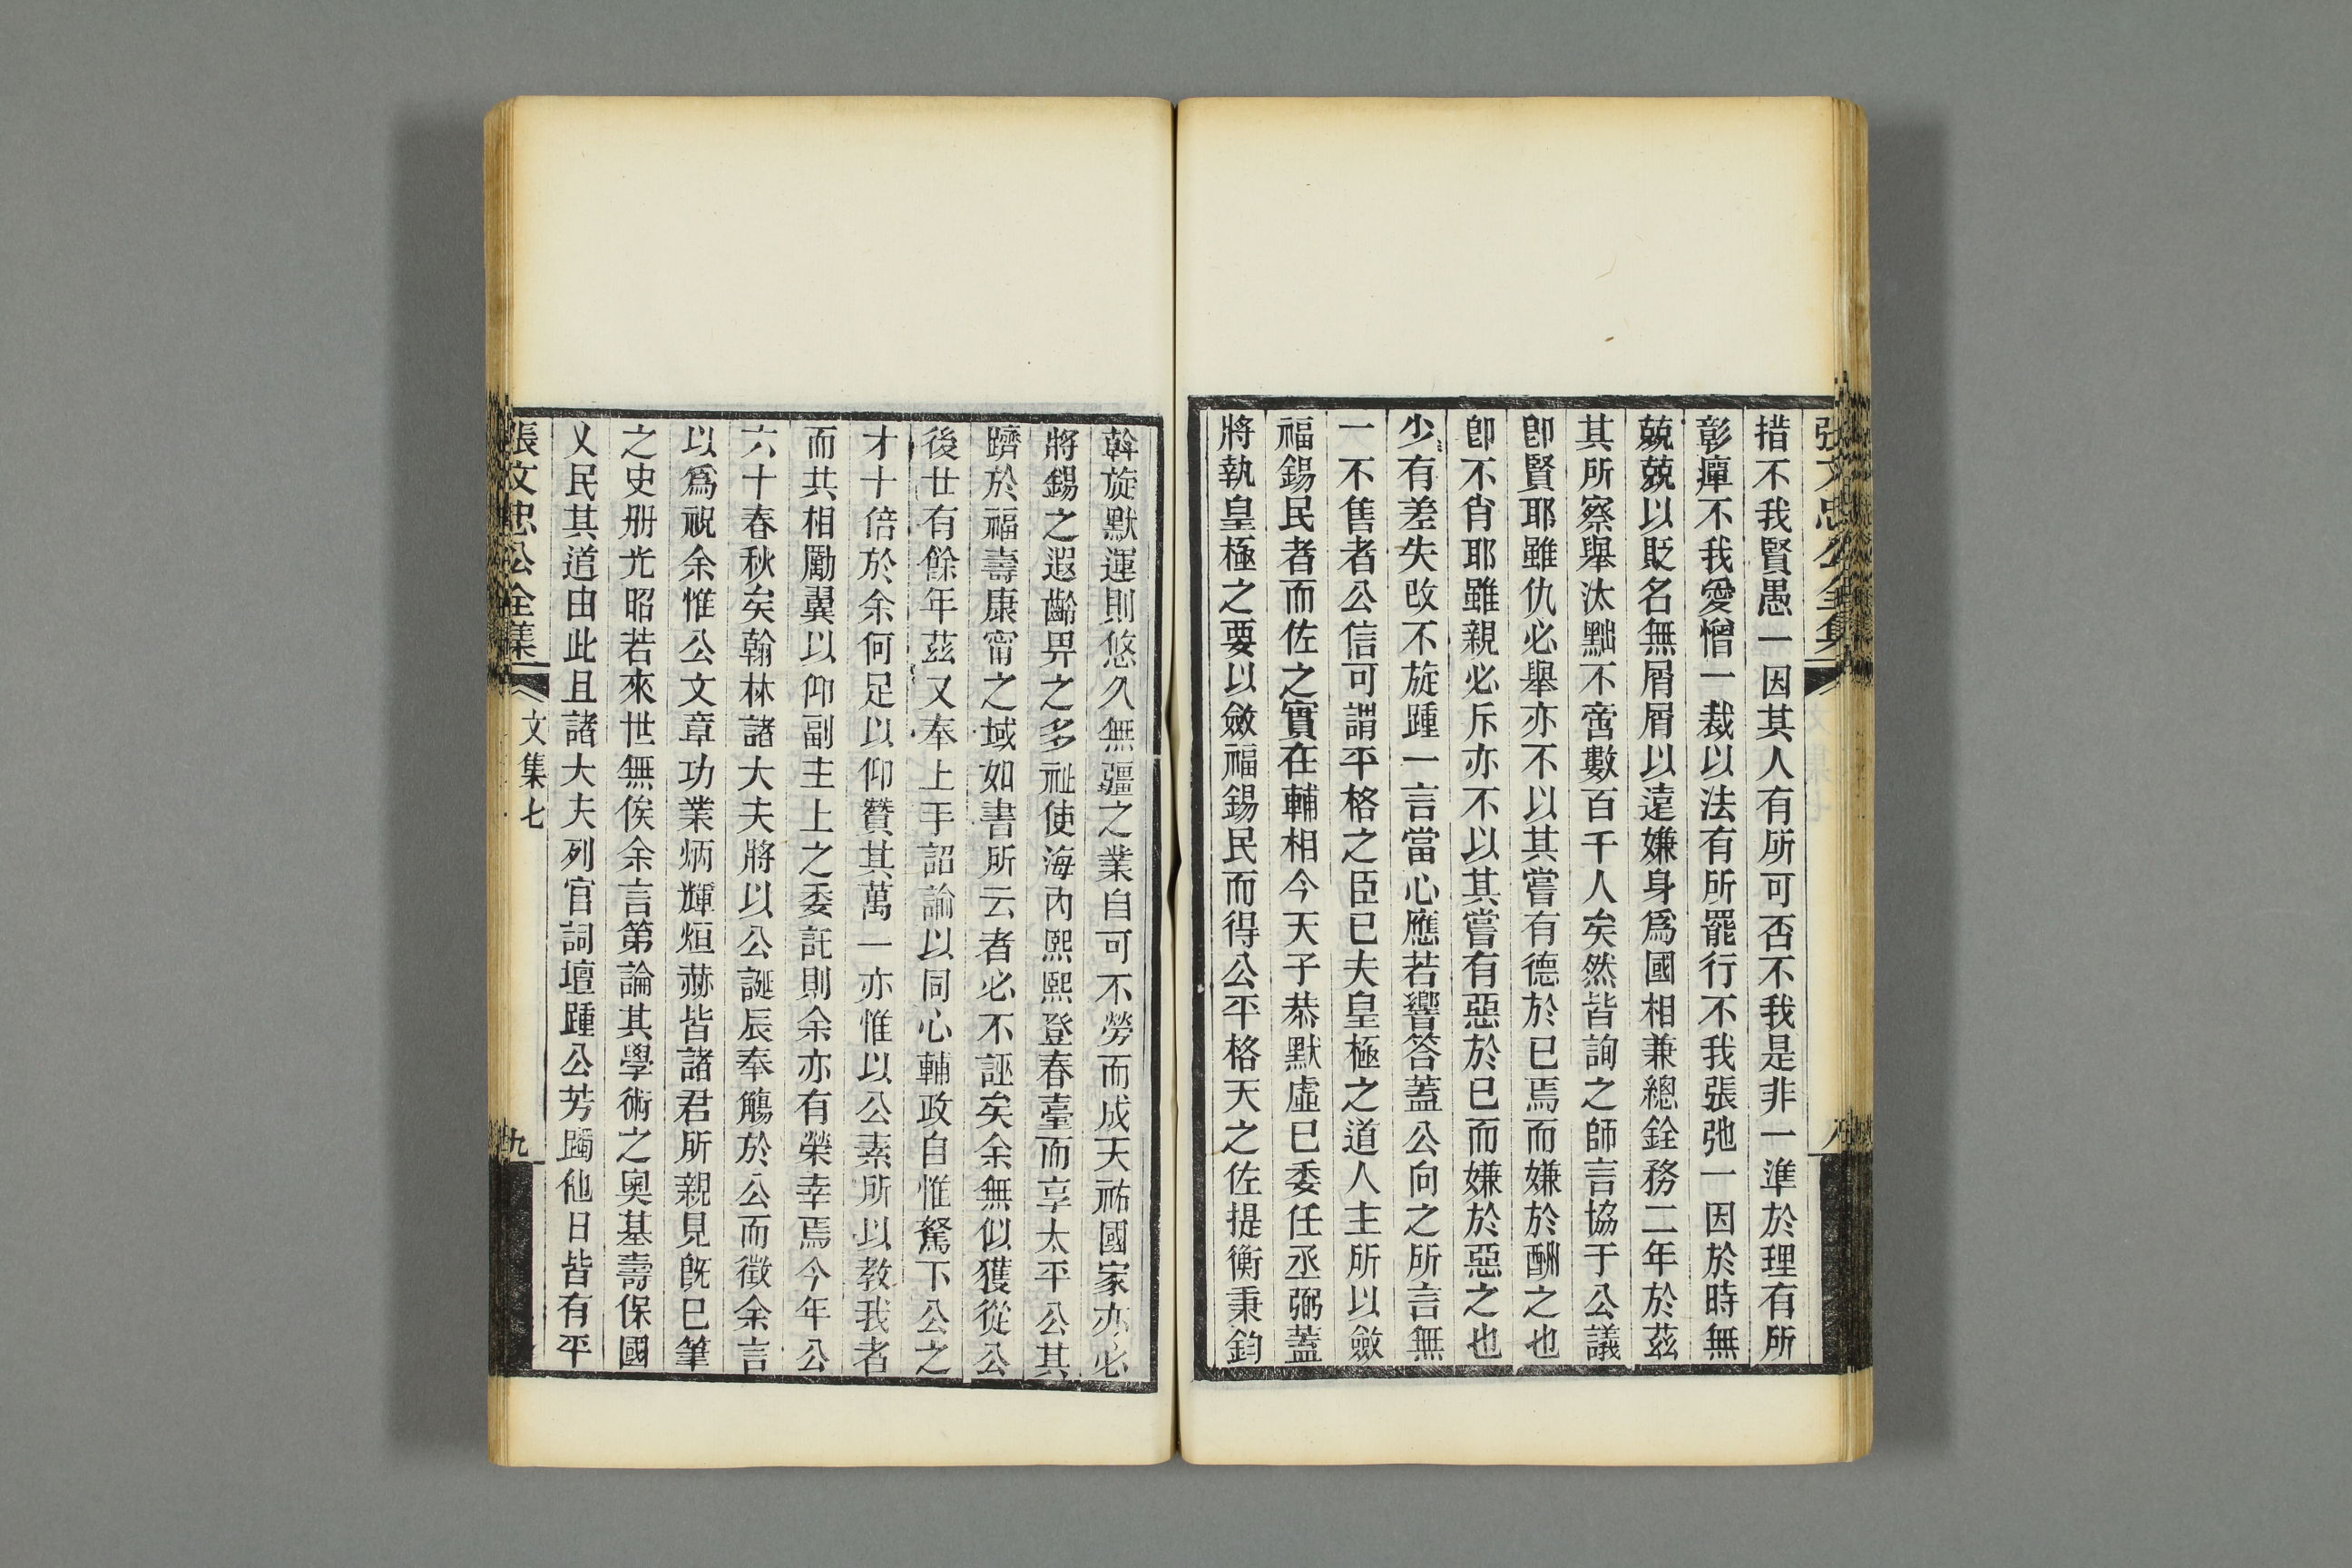 張文忠公全集
八
措不我賢愚一因其人有所可否不我是非一準於理有所
彰癉不我愛憎一裁以法有所罷行不我張弛一因於時無
兢兢以貶名無屑屑以遠嫌身爲國相兼總銓務二年於茲
其所察舉汰黜不啻數百千人矣然皆詢之師言協于公議
卽賢耶雖仇必舉亦不以其嘗有德於已焉而嫌於酬之也
卽不肖耶雖親必斥亦不以其嘗有惡於已而嫌於惡之也
少有差失改不旋踵一言當心應若響答蓋公向之所言無
一不售者公信可謂平格之臣已夫皇極之道人主所以斂
福錫民者而佐之實在輔相今天子恭默虛已委任丞弼蓋
將執皇極之要以斂福錫民而得公平格天之佐提衡秉鈞
斡旋默運則悠久無疆之業自可不勞而成天祐國家亦必
將錫之遐齡畀之多祉使海內熙熙登春臺而享太平公其
躋於福壽康甯之域如書所云者必不誣矣余無似獲從公
後廿有餘年茲又奉上手詔諭以同心輔政自惟駑下公之
才十倍於余何足以仰贊其萬一亦惟以公素所以教我者
而共相勵翼以仰副主上之委託則余亦有榮幸焉今年公
六十春秋矣翰林諸大夫將以公誕辰奉觴於公而徵余言
以爲祝余惟公文章功業炳輝烜赫皆諸君所親見旣已筆
之史册光昭若來世無俟余言第論其學術之奧基壽保國
乂民其道由此且諸大夫列官詞壇踵公芳躅他日皆有平
張文忠公全集
文集七
九